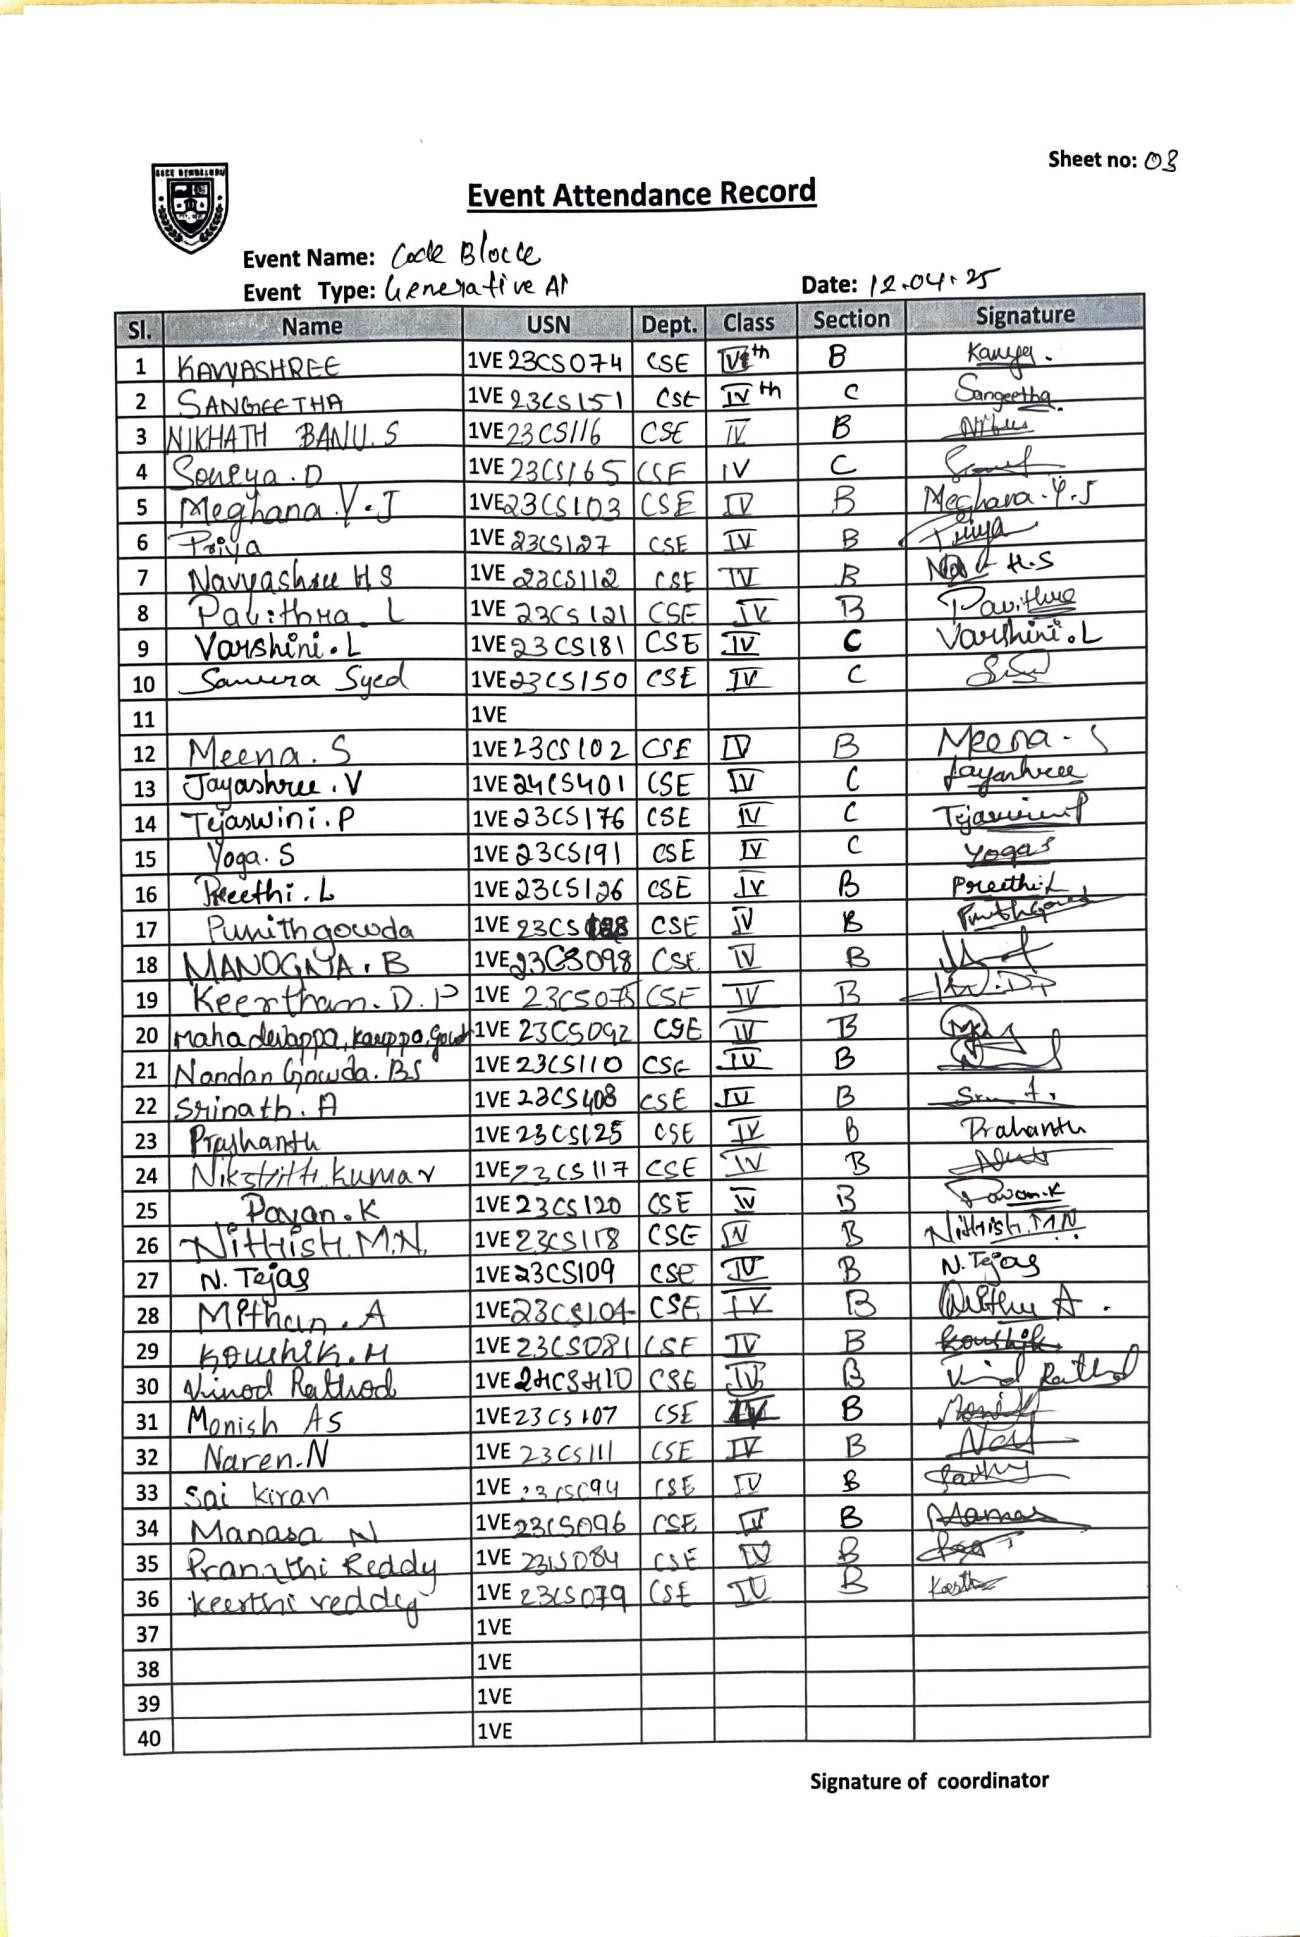 Sheet no: 03
Event Attendance Record
Event Name: Code Block
Event Type: Generative AI Date: 12.04.25
Sl. Name USN Dept. Class Section Signature
1 KAVYASHREE 1VE 23CS074 CSE IVth B Kavya.
2 SANGEETHA 1VE 23CS151 CSE IVth C Sangeetha.
3 NIKHATH BANU.S 1VE 23CS116 CSE IV B
4 Soneya.D 1VE 23CS165 CSE IV C
5 Meghana.Y.J 1VE 23CS103 CSE IV B Meghana.Y.J
6 Priya 1VE 23CS127 CSE IV B Priya
7 Navyashree H S 1VE 23CS112 CSE IV B H.S
8 Pavithra.L 1VE 23CS121 CSE IV B Pavithra
9 Varshini.L 1VE 23CS181 CSE IV C Varshini.L
10 Sameera Syed 1VE 23CS150 CSE IV C
11 1VE
12 Meena.S 1VE 23CS102 CSE IV B Meena.S
13 Jayashree.V 1VE 24CS401 CSE IV C Jayashree
14 Tejaswini.P 1VE 23CS176 CSE IV C Tejaswini P
15 Yoga.S 1VE 23CS191 CSE IV C Yoga S
16 Preethi.L 1VE 23CS126 CSE IV B Preethi.L
17 Punithgowda 1VE 23CS CSE IV B Punithgowda
18 MANOGNYA.B 1VE 23CS098 CSE IV B
19 Keertham.D.P 1VE 23CS075 CSE IV B
20 Mahadevappa, 1VE 23CS092 CSE IV B
21 Nandan Gowda.BS 1VE 23CS110 CSE IV B
22 Srinath.A 1VE 23CS408 CSE IV B
23 Prashanth 1VE 23CS125 CSE IV B Prahanth
24 Nikshith kumar 1VE 23CS117 CSE IV B
25 Pavan.K 1VE 23CS120 CSE IV B Pavan.K
26 Nithish.M.N. 1VE 23CS118 CSE IV B Nithish.M.N
27 N.Tejas 1VE 23CS109 CSE IV B N.Tejas
28 Mithun.A 1VE 23CS104 CSE IV B A.
29 Koushik.M 1VE 23CS081 CSE IV B Koushik
30 Vinod Rathod 1VE 24CS410 CSE IV B Vinod Rathod
31 Monish AS 1VE 23CS107 CSE IV B Monish
32 Naren.N 1VE 23CS111 CSE IV B
33 Sai Kiran 1VE CSE IV B
34 Manasa N 1VE 23CS096 CSE IV B Manas
35 Pranathi Reddy 1VE 23CS084 CSE IV B
36 keerthi reddy 1VE 23CS079 CSE IV B
37 1VE
38 1VE
39 1VE
40 1VE
Signature of coordinator